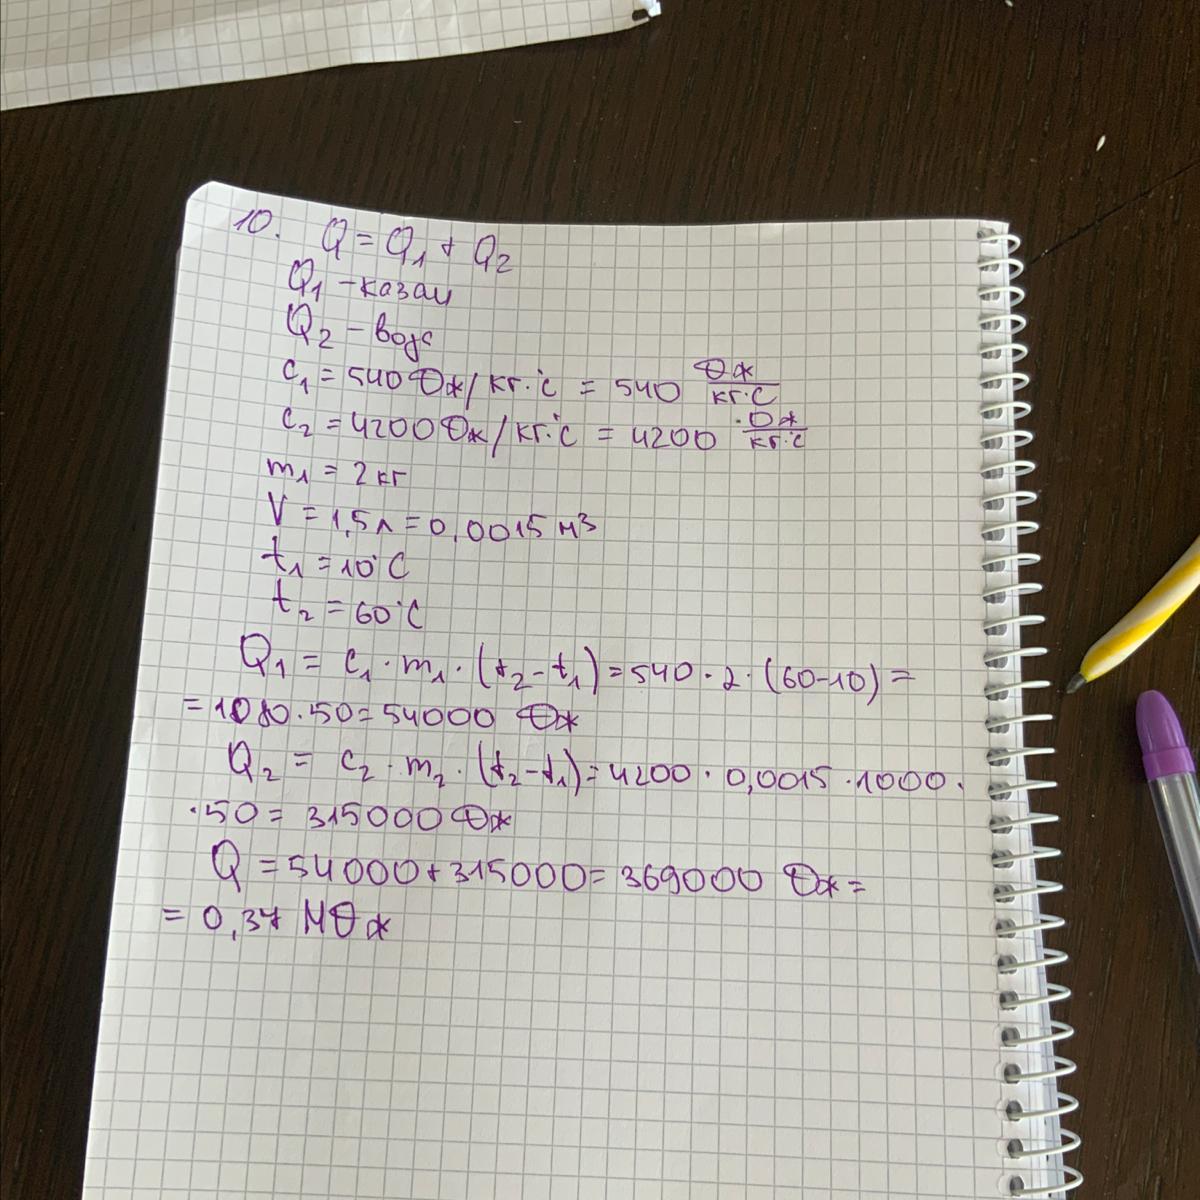 10. Q = Q₁ + Q₂
Q₁ – казан
Q₂ – вода
c₁ = 540 Дж/кг·°C = 540 Дж/кг·°C
c₂ = 4200 Дж/кг·°C = 4200 Дж/кг·°C
m₁ = 2 кг
V = 1,5 л = 0,0015 м³
t₁ = 10°C
t₂ = 60°C
Q₁ = c₁ · m₁ · (t₂ – t₁) = 540 · 2 · (60–10) =
= 1080 · 50 = 54000 Дж
Q₂ = c₂ · m₂ · (t₂ – t₁) = 4200 · 0,0015 · 1000 ·
· 50 = 315000 Дж
Q = 54000 + 315000 = 369000 Дж =
= 0,37 МДж